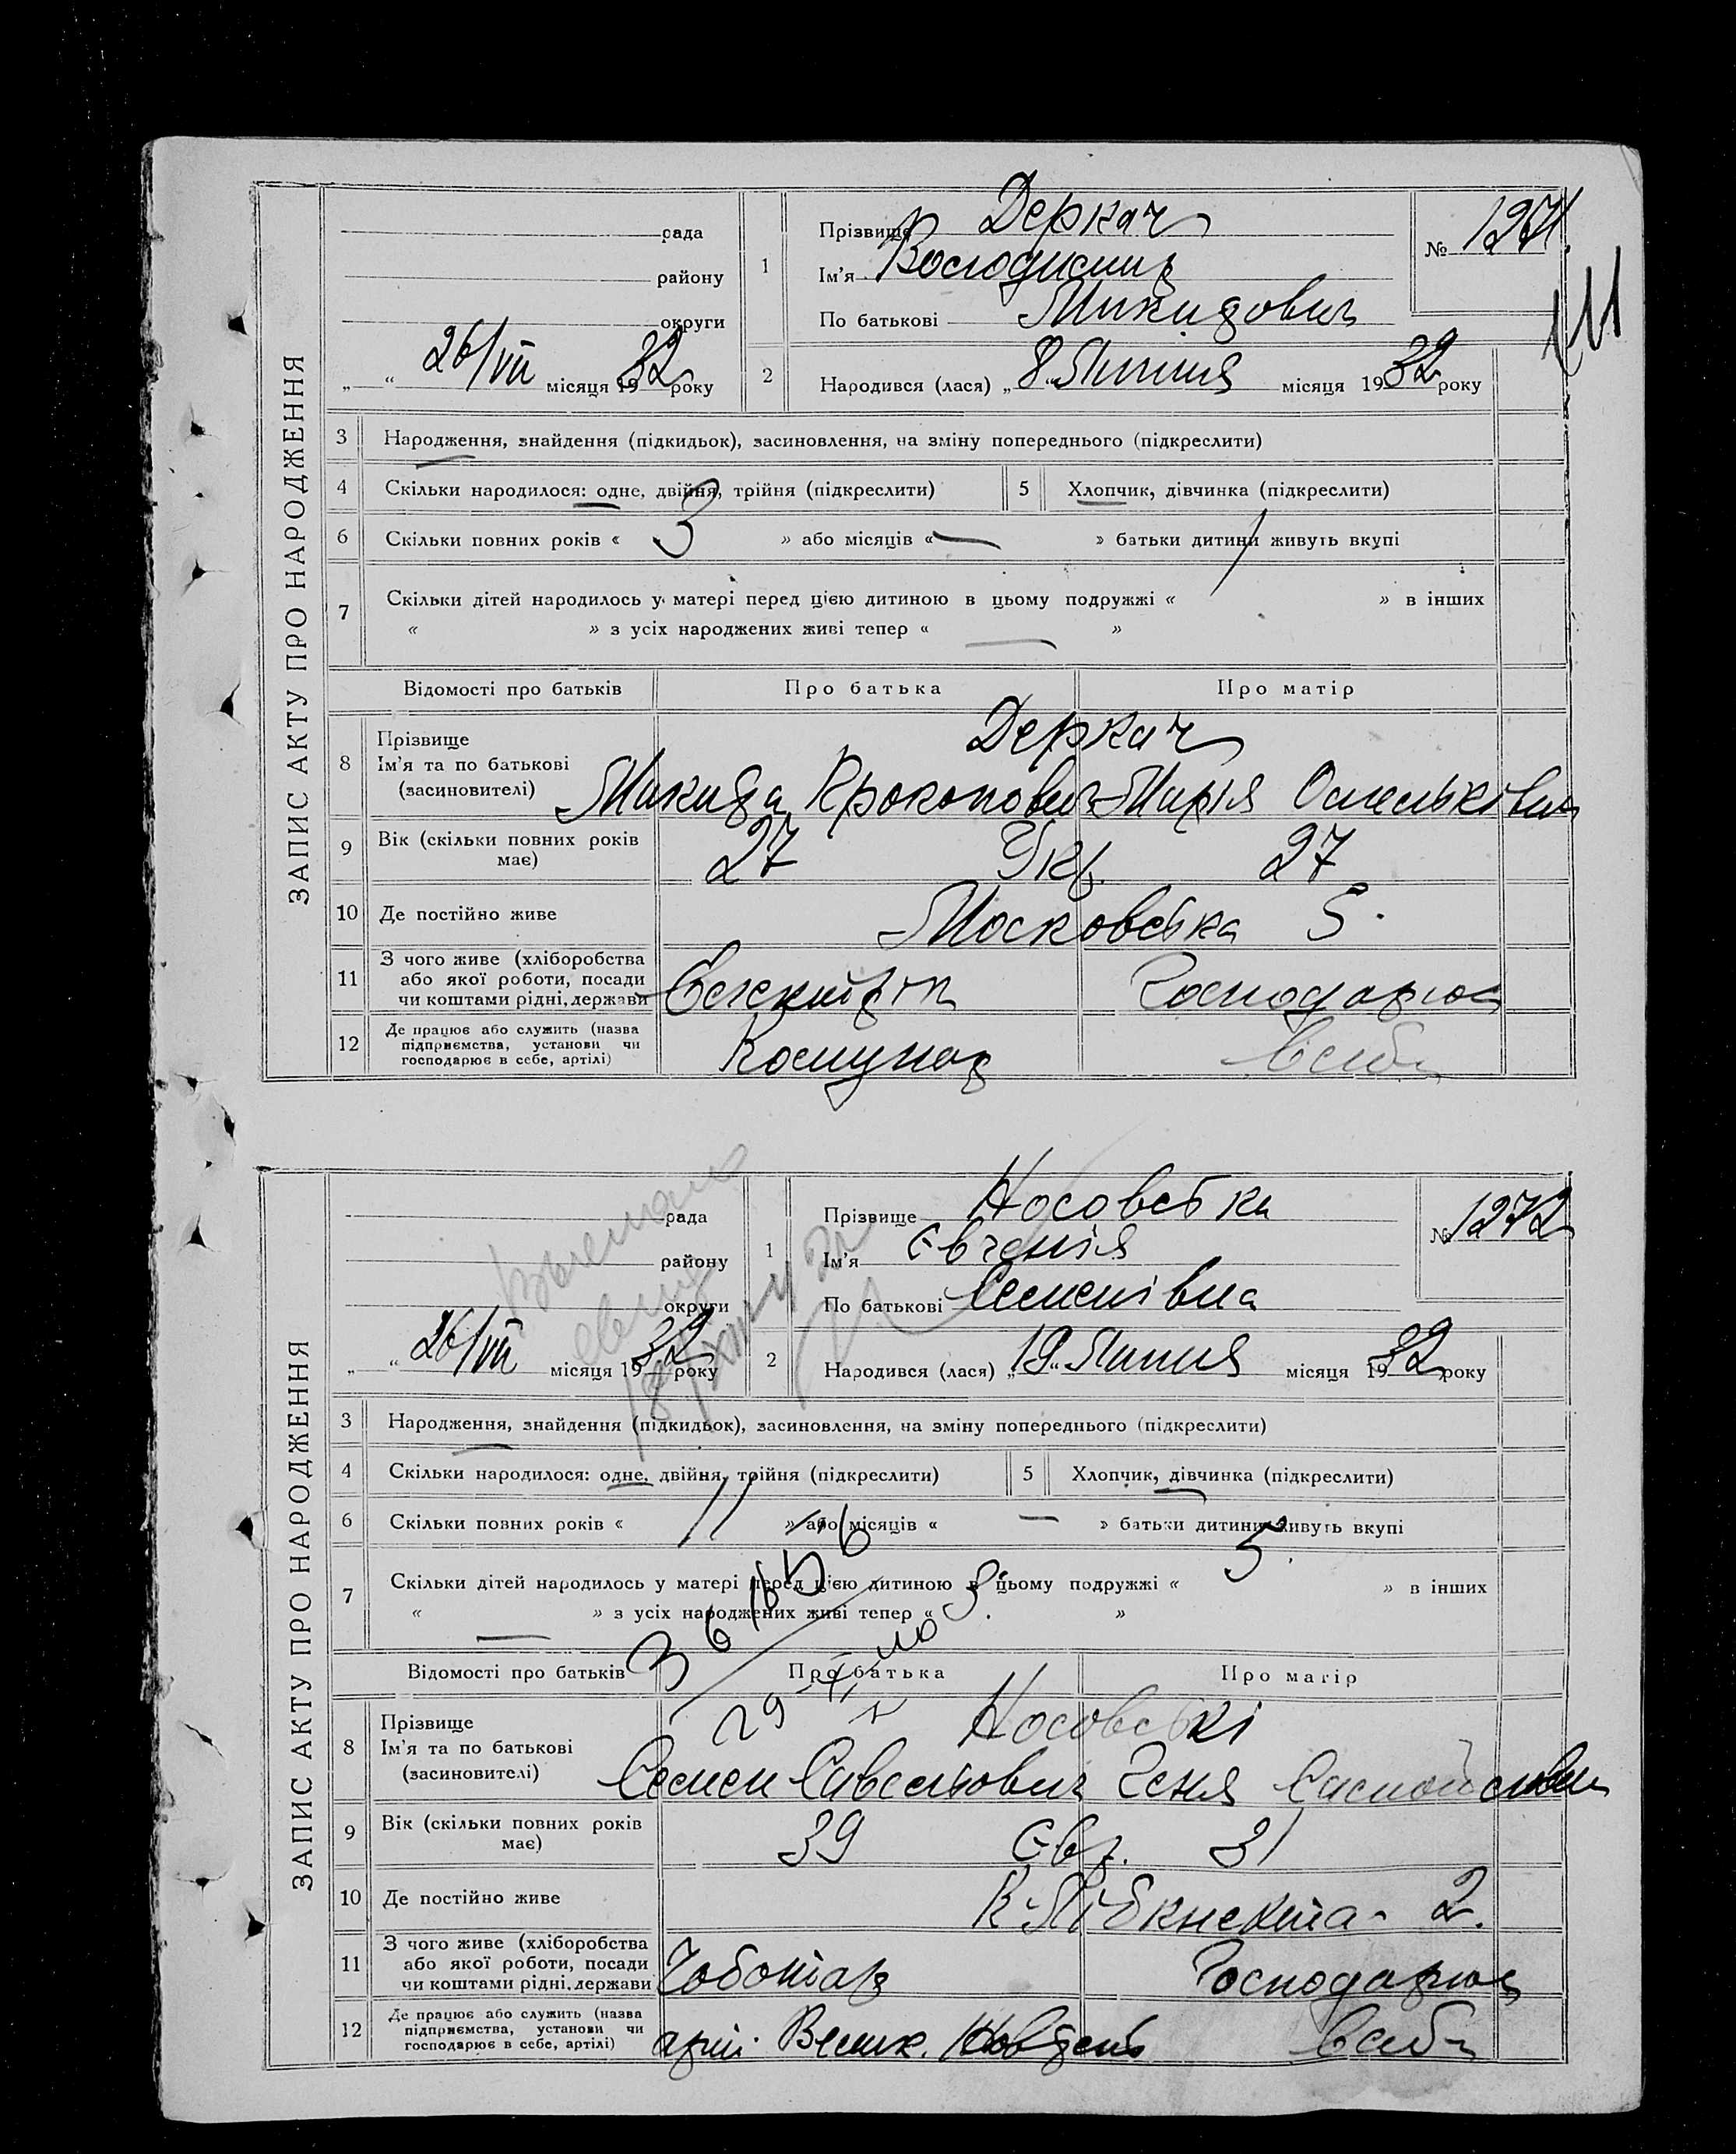 ЗАПИС АКТУ ПРО НАРОДЖЕННЯ
рада
району
округи
„ “ 26/VII місяця 1932 року
1
Прізвище Деркач
Ім'я Володимир
По батькові Микидович
№ 1271.
2
Народився (лася) „8“ Липня місяця 1932 року
3 Народження, знайдення (підкидьок), засиновлення, на зміну попереднього (підкреслити)
4 Скільки народилося: одне, двійня, трійня (підкреслити)
5 Хлопчик, дівчинка (підкреслити)
6 Скільки повних років « 3 » або місяців « — » батьки дитини живуть вкупі
7 Скільки дітей народилось у матері перед цією дитиною в цьому подружжі « 1 » в інших
« » з усіх народжених живі тепер « — »
Відомості про батьків Про батька Про матір
8 Прізвище
Ім'я та по батькові
(засиновителі)
Деркач
Микида Прокопович Марія
9 Вік (скільки повних років має) 27 Укр. 27
10 Де постійно живе Московська 5.
11 З чого живе (хліборобства або якої роботи, посади чи коштами рідні, держави Господарює
12 Де працює або служить (назва підприємства, установи чи господарює в себе, артілі) Комунар в себе
ЗАПИС АКТУ ПРО НАРОДЖЕННЯ
рада
району
округи
„ “ 26/VII місяця 1932 року
1
Прізвище Носовська
Ім'я Євгенія
По батькові Семенівна
№ 1272
2
Народився (лася) „19“ Липня місяця 1932 року
3 Народження, знайдення (підкидьок), засиновлення, на зміну попереднього (підкреслити)
4 Скільки народилося: одне, двійня, трійня (підкреслити)
5 Хлопчик, дівчинка (підкреслити)
6 Скільки повних років « 11 » або місяців « — » батьки дитини живуть вкупі
7 Скільки дітей народилось у матері перед цією дитиною в цьому подружжі « 5 » в інших
« — » з усіх народжених живі тепер « 3. »
Відомості про батьків Про батька Про матір
8 Прізвище
Ім'я та по батькові
(засиновителі)
Носовські
Семен Савельович Геня
9 Вік (скільки повних років має) 39 Євр. 31
10 Де постійно живе К-Лібкнехта - 2.
11 З чого живе (хліборобства або якої роботи, посади чи коштами рідні, держави Чоботар Господарює
12 Де працює або служить (назва підприємства, установи чи господарює в себе, артілі) арт. Велик. Жовтень в себе